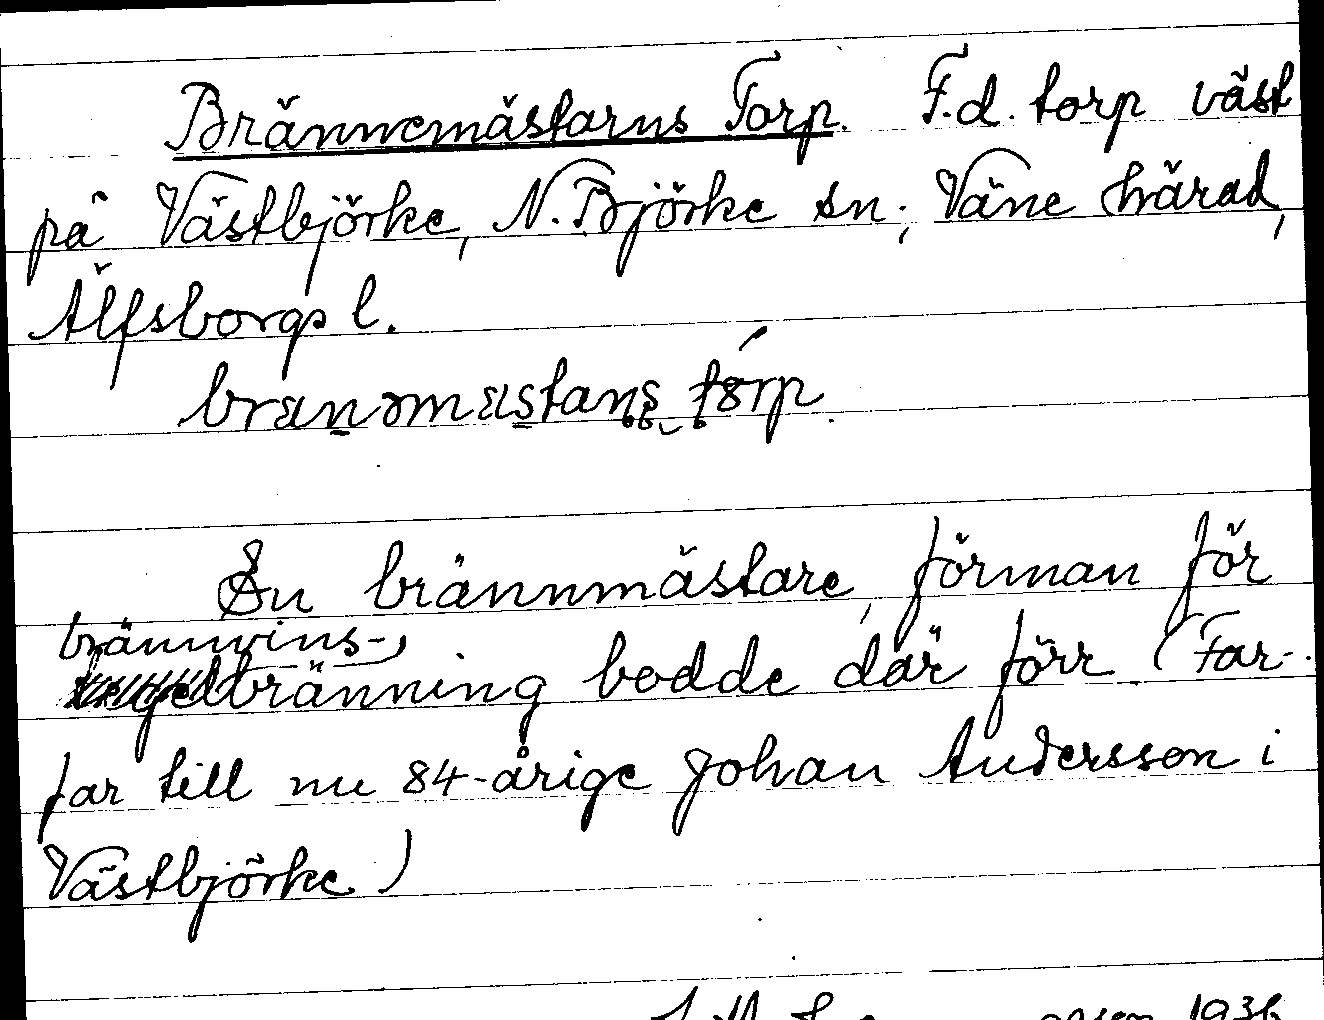 Brännemästarns Torp. F.d. torp väst
på Västbjörke, N. Björke sn; Väne härad,
Älfsborgs l.
En brännmästare, förman för
brännvins-
bränning bodde där förr. (Far-
far till nu 84-årige Johan Andersson i
Västbjörke)
1936